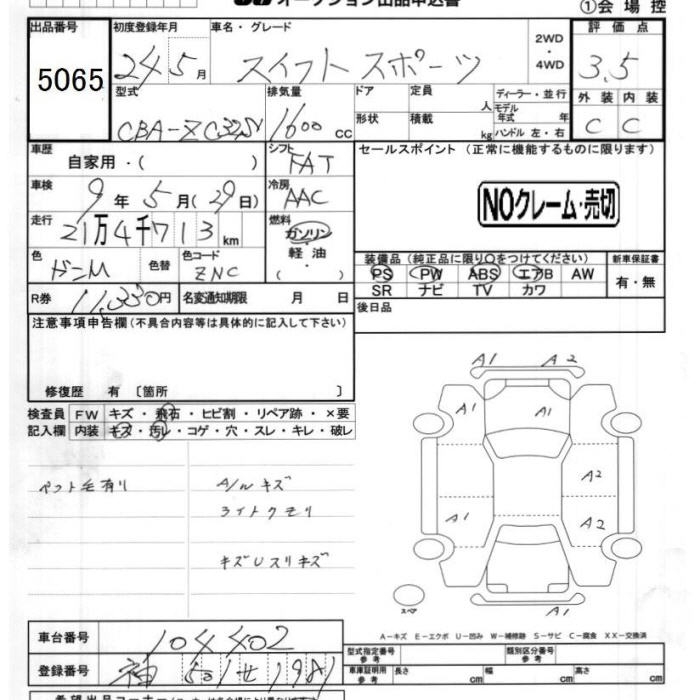 オークション出品申込書
①会場控
出品番号
5065
初度登録年月
24 5月
車名・グレード
スイフトスポーツ
2WD
・
4WD
評価点
3.5
外装 内装
C C
型式
CBA-ZC32S
排気量
1600 cc
ドア
定員 人
形状
積載 kg
ディーラー・並行
モデル年式 年
ハンドル 左・右
車歴
自家用・( )
シフト
FAT
セールスポイント (正常に機能するものに限ります)
NOクレーム・売切
車検
9年5月(29日)
冷房
AAC
走行
21万4千713km
燃料
ガソリン
軽油
・( )
色
色替
色コード
ZNC
装備品 (純正品に限り○をつけてください)
PS PW ABS エアB AW
SR ナビ TV カワ
新車保証書
有・無
R券
円
名変通知期限 月 日
後日品
注意事項申告欄(不具合内容等は具体的に記入して下さい)
修復歴 有 〔箇所 〕
検査員 FW キズ・飛石・ヒビ割・リペア跡・×要
記入欄 内装 キズ・汚レ・コゲ・穴・スレ・キレ・破レ
ペット毛有り
A/Wキズ
ライトクモリ
キズUスリキズ
A1 A2
A1 A1
A2
A1 A2
A1
スペア
A-キズ E-エクボ U-凹み W-補修跡 S-サビ C-腐食 XX-交換済
車台番号
104402
登録番号
型式指定番号
参考
類別区分番号
参考
車庫証明用
参考
長さ cm 幅 cm 高さ cm